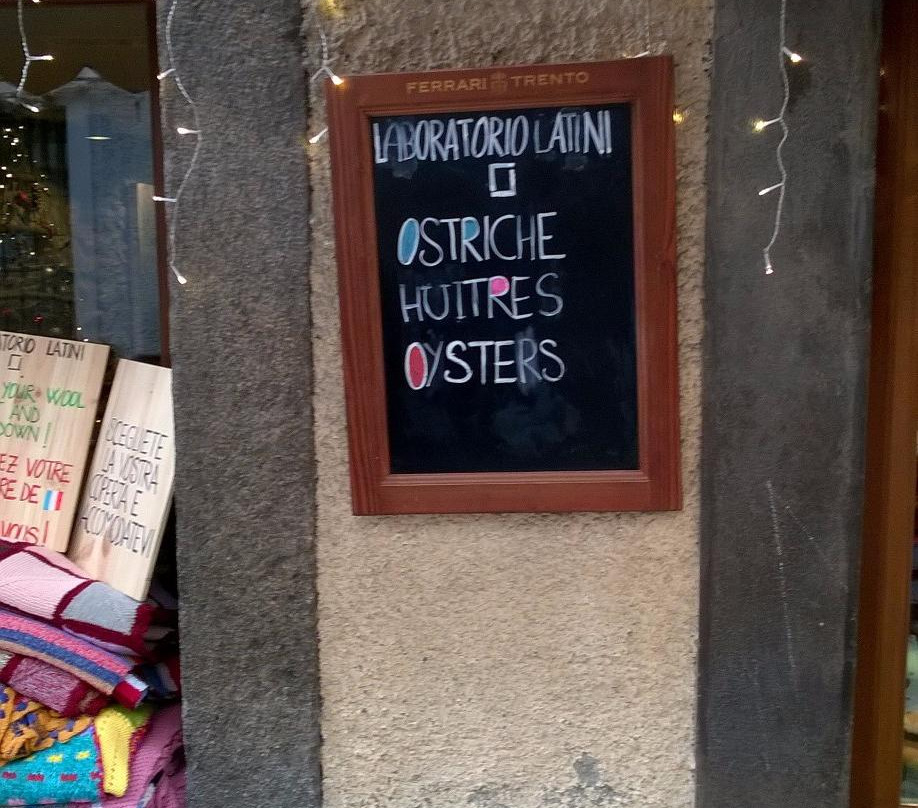 FERRARI TRENTO
LABORATORIO LATINI
OSTRICHE
HUITRES
OYSTERS
LATINI
YOUR WOOL
AND
DOWN!
VOTRE
DE
VOUS!
SCEGLIETE
LA VOSTRA
COPERTA E
ACCOMODATEVI